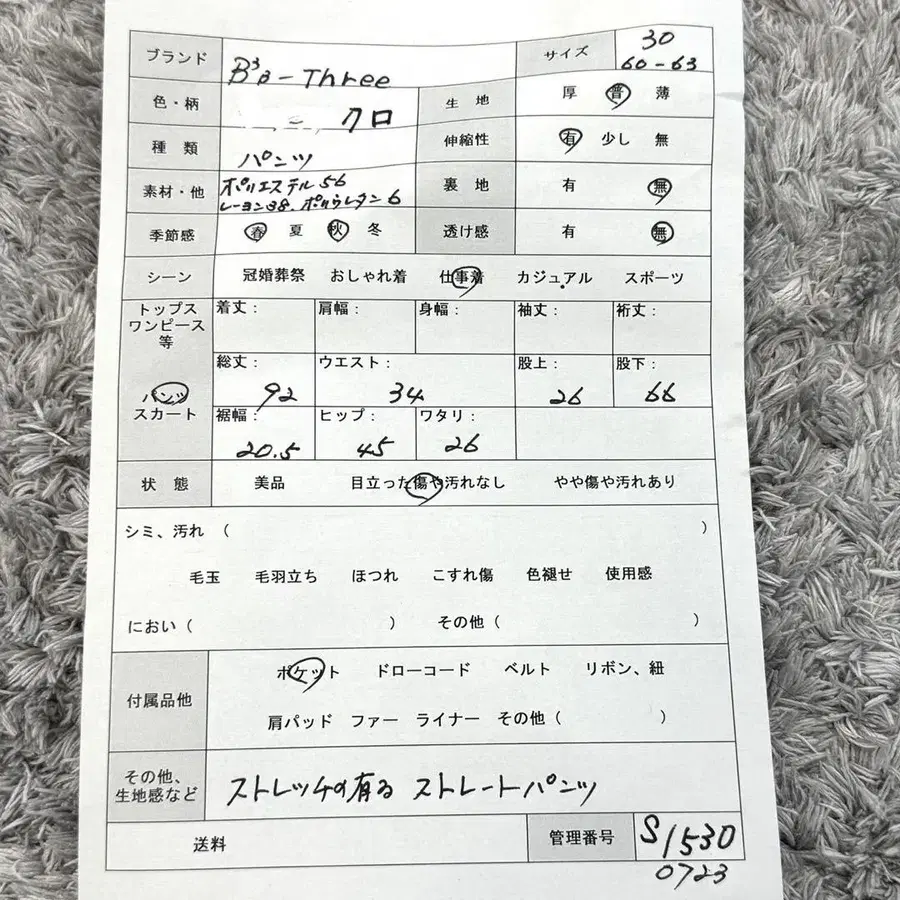 ブランド B³B-Three サイズ 30
60-63
色・柄 クロ 生地 厚 普 薄
種類 パンツ 伸縮性 有 少し 無
素材・他 ポリエステル56
レーヨン38、ポリウレタン6 裏地 有 無
季節感 春 夏 秋 冬 透け感 有 無
シーン 冠婚葬祭 おしゃれ着 仕事着 カジュアル スポーツ
トップス
ワンピース
等
着丈： 肩幅： 身幅： 袖丈： 裄丈：
パンツ
スカート
総丈： 92 ウエスト： 34 股上： 26 股下： 66
裾幅： 20.5 ヒップ： 45 ワタリ： 26
状態 美品 目立った傷や汚れなし やや傷や汚れあり
シミ、汚れ（ ）
毛玉 毛羽立ち ほつれ こすれ傷 色褪せ 使用感
におい（ ） その他（ ）
付属品他 ポケット ドローコード ベルト リボン、紐
肩パッド ファー ライナー その他（ ）
その他、
生地感など
ストレッチの有る ストレートパンツ
送料 管理番号 S1530
0723